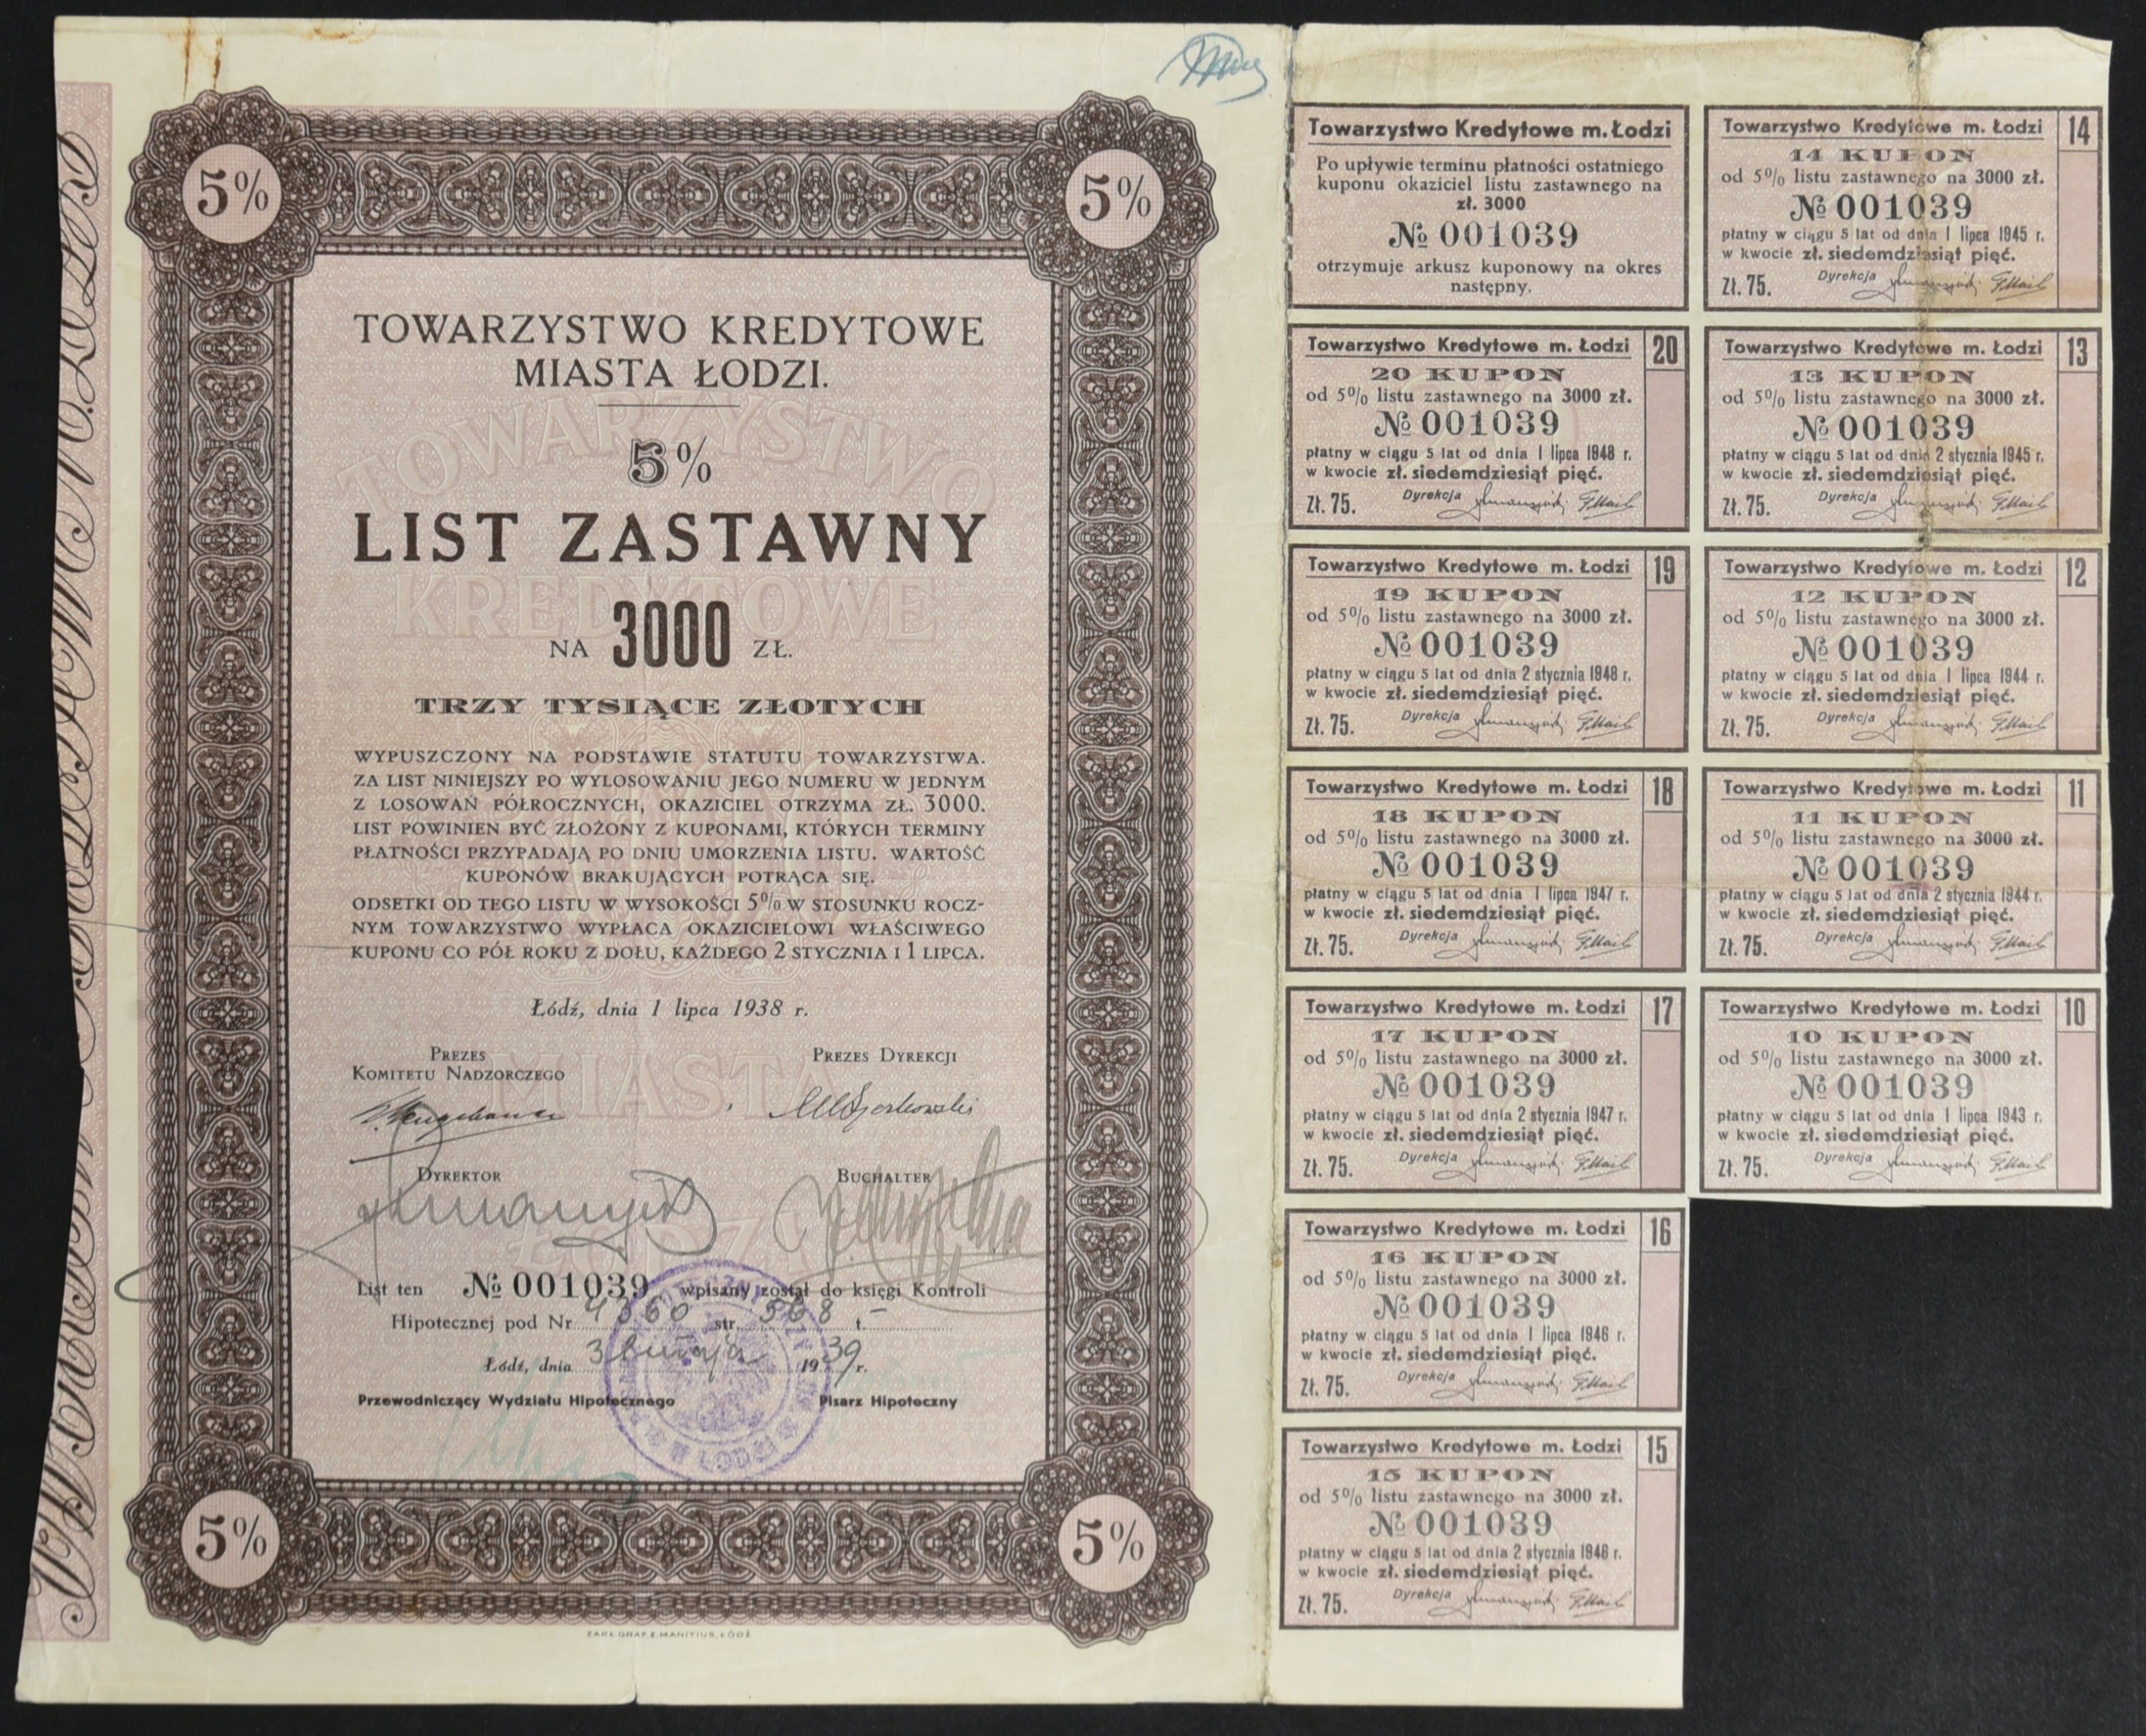 5%
5%
TOWARZYSTWO KREDYTOWE
MIASTA ŁODZI.
5%
LIST ZASTAWNY
NA 3000 ZŁ.
TRZY TYSIĄCE ZŁOTYCH
WYPUSZCZONY NA PODSTAWIE STATUTU TOWARZYSTWA.
ZA LIST NINIEJSZY PO WYLOSOWANIU JEGO NUMERU W JEDNYM
Z LOSOWAŃ PÓŁROCZNYCH, OKAZICIEL OTRZYMA ZŁ. 3000.
LIST POWINIEN BYĆ ZŁOŻONY Z KUPONAMI, KTÓRYCH TERMINY
PŁATNOŚCI PRZYPADAJĄ PO DNIU UMORZENIA LISTU. WARTOŚĆ
KUPONÓW BRAKUJĄCYCH POTRĄCA SIĘ.
ODSETKI OD TEGO LISTU W WYSOKOŚCI 5% W STOSUNKU ROCZ-
NYM TOWARZYSTWO WYPŁACA OKAZICIELOWI WŁAŚCIWEGO
KUPONU CO PÓŁ ROKU Z DOŁU, KAŻDEGO 2 STYCZNIA I 1 LIPCA.
Łódź, dnia 1 lipca 1938 r.
PREZES
KOMITETU NADZORCZEGO
PREZES DYREKCJI
DYREKTOR
BUCHALTER
List ten № 001039 wpisany został do księgi Kontroli
Hipotecznej pod Nr 4360 str. 568 t. –
Łódź, dnia 31 maja 1939 r.
Przewodniczący Wydziału Hipotecznego
Pisarz Hipoteczny
W ŁODZI
5%
5%
ZAKŁ. GRAF. E. MANITIUS, ŁÓDŹ
TOWARZYSTWO
KREDYTOWE
3000
MIASTA
ŁODZI
Towarzystwo Kredytowe m. Łodzi
Po upływie terminu płatności ostatniego
kuponu okaziciel listu zastawnego na
zł. 3000
№ 001039
otrzymuje arkusz kuponowy na okres
następny.
Towarzystwo Kredytowe m. Łodzi 20
20 KUPON
od 5% listu zastawnego na 3000 zł.
№ 001039
płatny w ciągu 5 lat od dnia 1 lipca 1948 r.
w kwocie zł. siedemdziesiąt pięć.
Zł. 75. Dyrekcja
Towarzystwo Kredytowe m. Łodzi 19
19 KUPON
od 5% listu zastawnego na 3000 zł.
№ 001039
płatny w ciągu 5 lat od dnia 2 stycznia 1948 r.
w kwocie zł. siedemdziesiąt pięć.
Zł. 75. Dyrekcja
Towarzystwo Kredytowe m. Łodzi 18
18 KUPON
od 5% listu zastawnego na 3000 zł.
№ 001039
płatny w ciągu 5 lat od dnia 1 lipca 1947 r.
w kwocie zł. siedemdziesiąt pięć.
Zł. 75. Dyrekcja
Towarzystwo Kredytowe m. Łodzi 17
17 KUPON
od 5% listu zastawnego na 3000 zł.
№ 001039
płatny w ciągu 5 lat od dnia 2 stycznia 1947 r.
w kwocie zł. siedemdziesiąt pięć.
Zł. 75. Dyrekcja
Towarzystwo Kredytowe m. Łodzi 16
16 KUPON
od 5% listu zastawnego na 3000 zł.
№ 001039
płatny w ciągu 5 lat od dnia 1 lipca 1946 r.
w kwocie zł. siedemdziesiąt pięć.
Zł. 75. Dyrekcja
Towarzystwo Kredytowe m. Łodzi 15
15 KUPON
od 5% listu zastawnego na 3000 zł.
№ 001039
płatny w ciągu 5 lat od dnia 2 stycznia 1946 r.
w kwocie zł. siedemdziesiąt pięć.
Zł. 75. Dyrekcja
Towarzystwo Kredytowe m. Łodzi 14
14 KUPON
od 5% listu zastawnego na 3000 zł.
№ 001039
płatny w ciągu 5 lat od dnia 1 lipca 1945 r.
w kwocie zł. siedemdziesiąt pięć.
Zł. 75. Dyrekcja
Towarzystwo Kredytowe m. Łodzi 13
13 KUPON
od 5% listu zastawnego na 3000 zł.
№ 001039
płatny w ciągu 5 lat od dnia 2 stycznia 1945 r.
w kwocie zł. siedemdziesiąt pięć.
Zł. 75. Dyrekcja
Towarzystwo Kredytowe m. Łodzi 12
12 KUPON
od 5% listu zastawnego na 3000 zł.
№ 001039
płatny w ciągu 5 lat od dnia 1 lipca 1944 r.
w kwocie zł. siedemdziesiąt pięć.
Zł. 75. Dyrekcja
Towarzystwo Kredytowe m. Łodzi 11
11 KUPON
od 5% listu zastawnego na 3000 zł.
№ 001039
płatny w ciągu 5 lat od dnia 2 stycznia 1944 r.
w kwocie zł. siedemdziesiąt pięć.
Zł. 75. Dyrekcja
Towarzystwo Kredytowe m. Łodzi 10
10 KUPON
od 5% listu zastawnego na 3000 zł.
№ 001039
płatny w ciągu 5 lat od dnia 1 lipca 1943 r.
w kwocie zł. siedemdziesiąt pięć.
Zł. 75. Dyrekcja